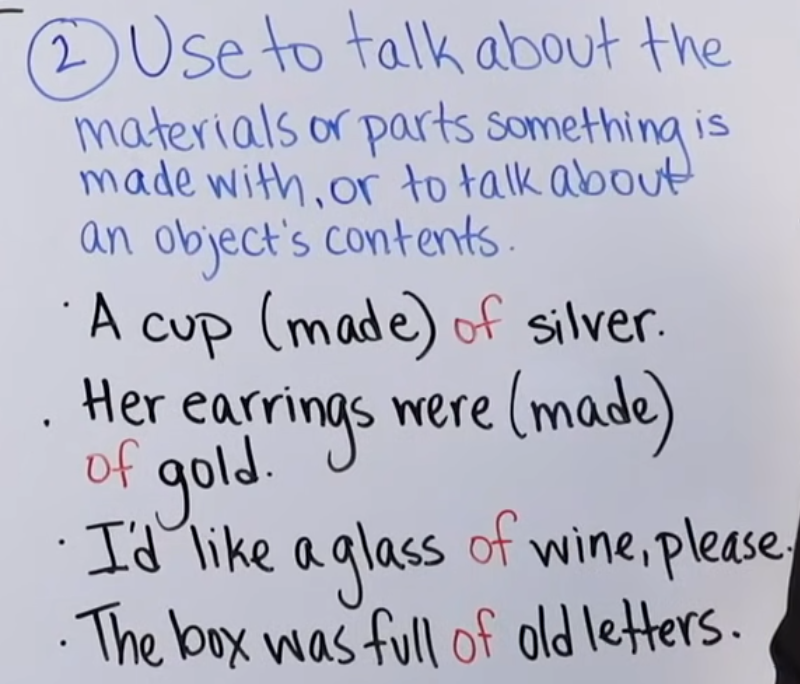 2 Use to talk about the
materials or parts something is
made with, or to talk about
an object's contents.
· A cup (made) of silver.
· Her earrings were (made)
of gold.
· I'd like a glass of wine, please.
· The box was full of old letters.